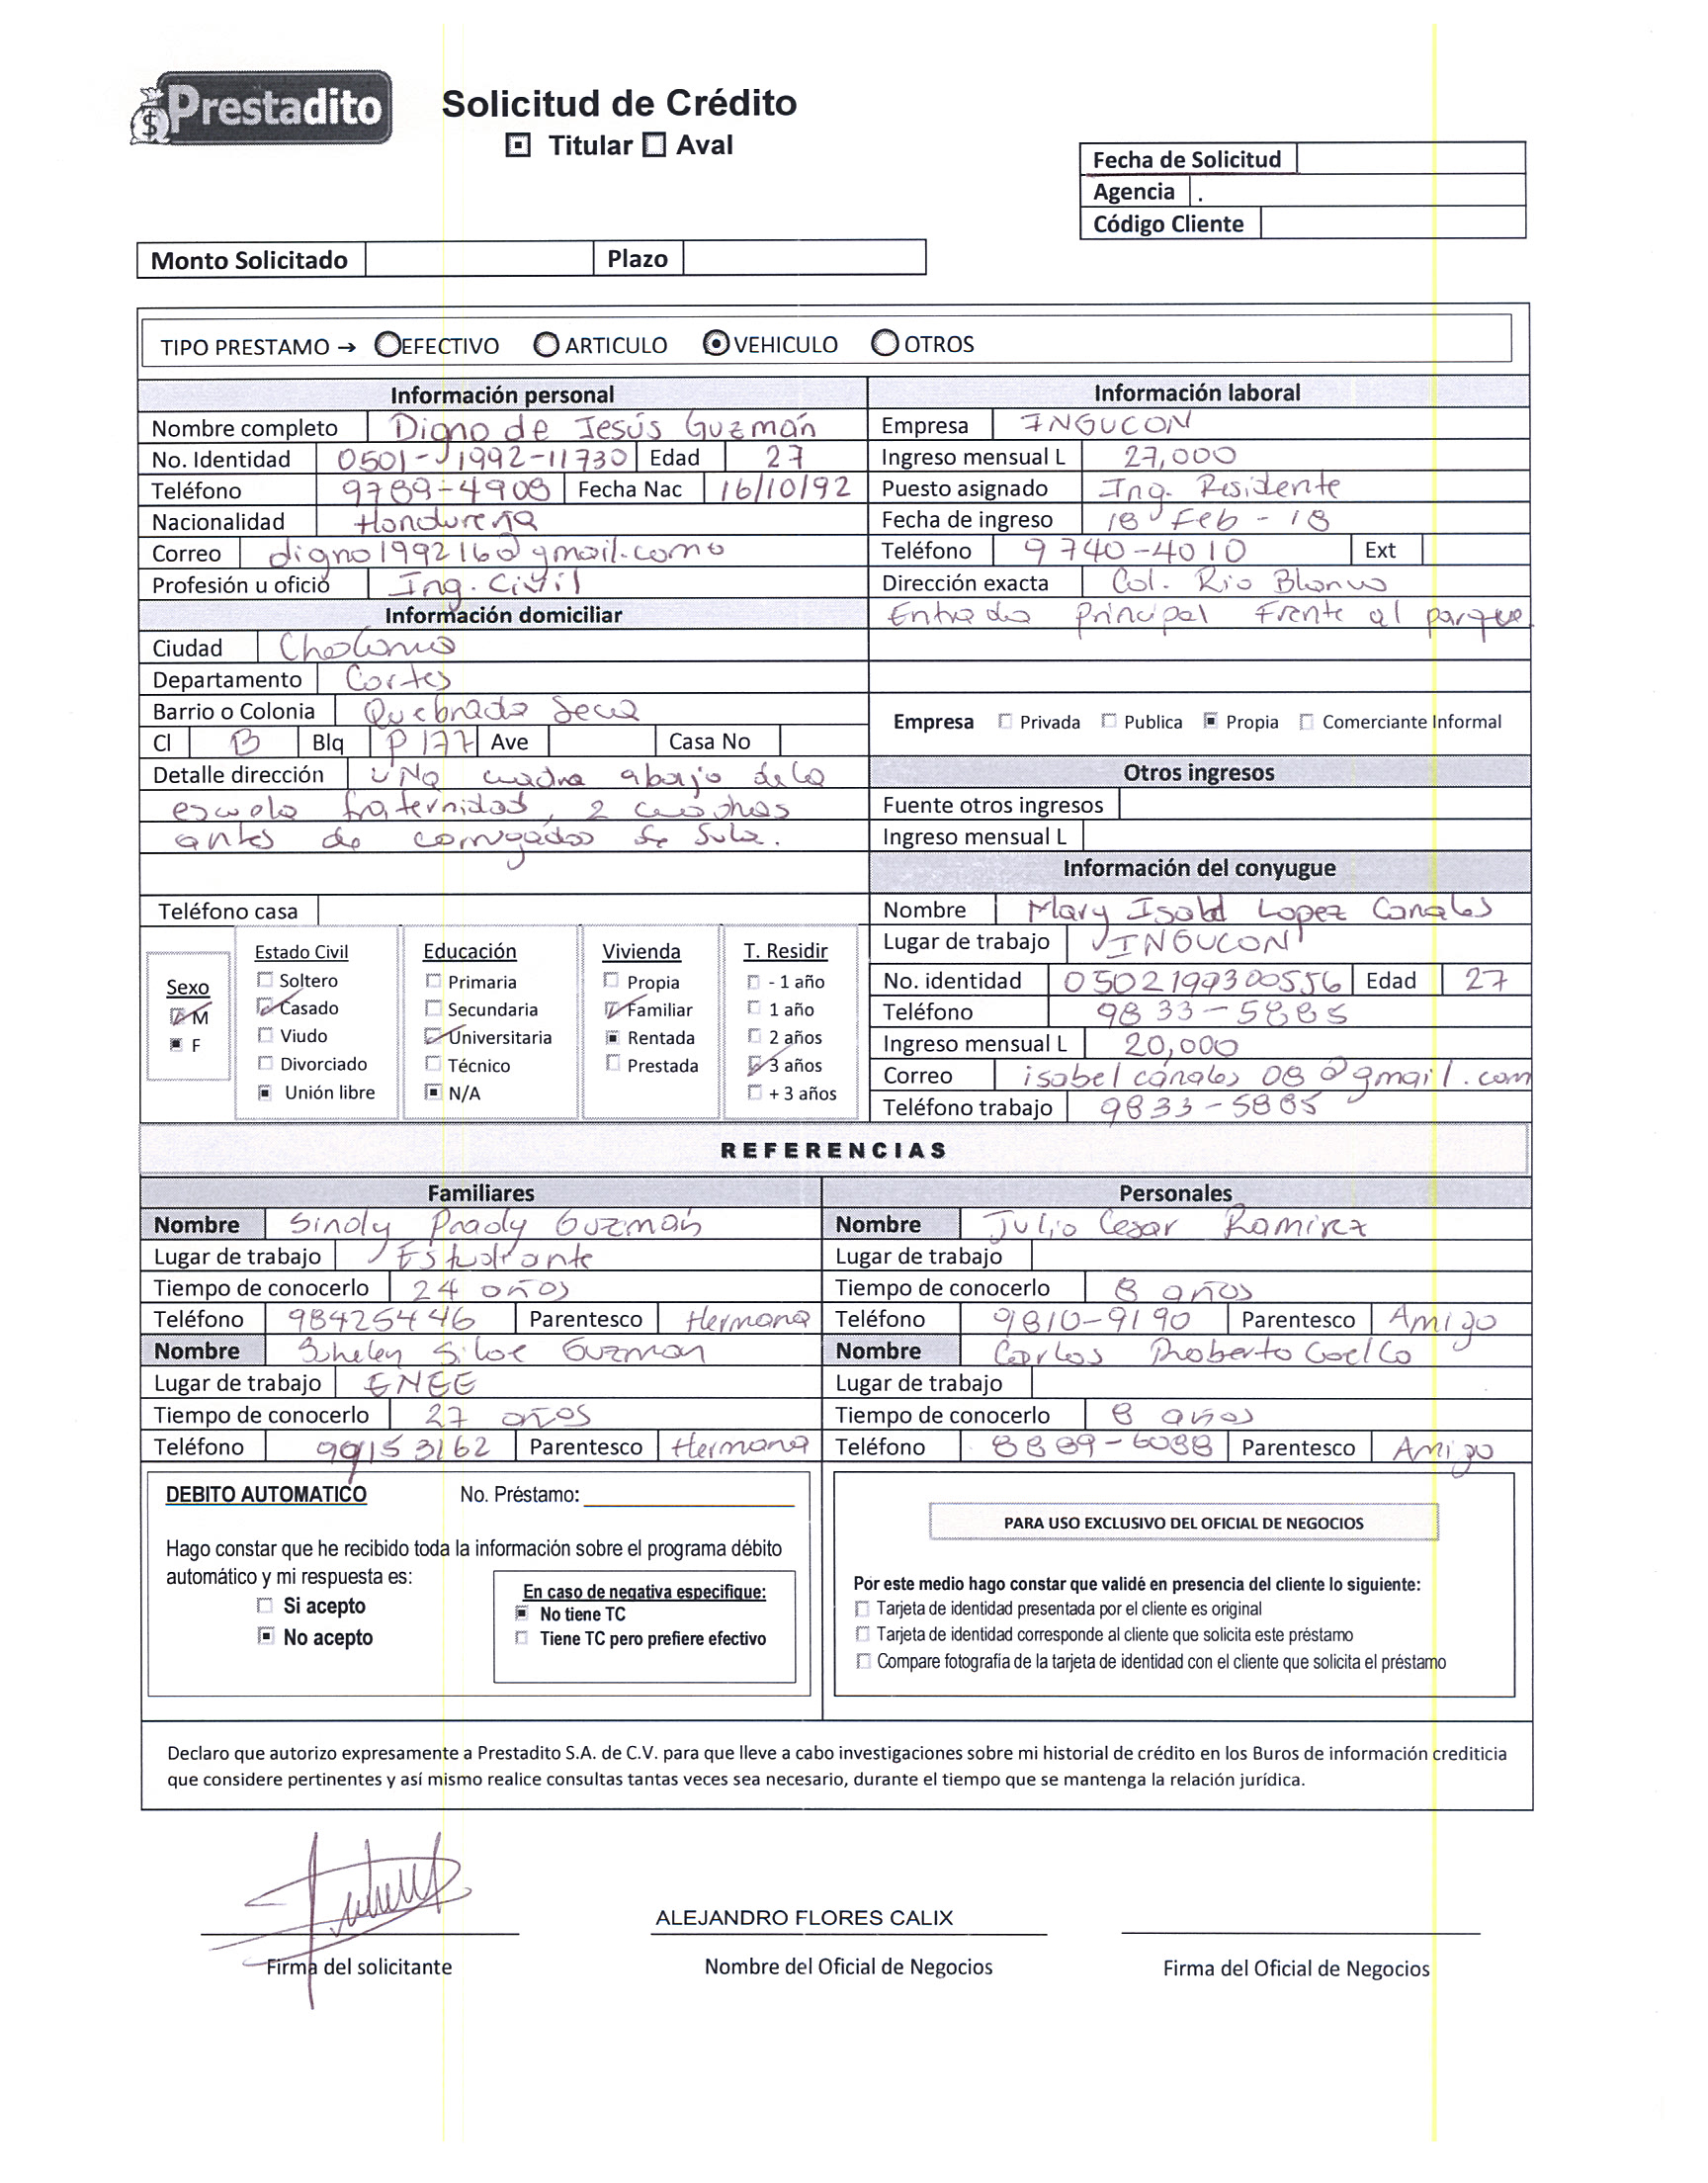 Prestadito
Solicitud de Crédito
Titular Aval
Fecha de Solicitud
Agencia .
Código Cliente
Monto Solicitado Plazo
TIPO PRESTAMO → EFECTIVO ARTICULO VEHICULO OTROS
Información personal
Nombre completo Digno de Jesús Guzmán
No. Identidad 0501-1992-11730 Edad 27
Teléfono 9789-4908 Fecha Nac 16/10/92
Nacionalidad Hondureña
Correo digno199216@gmail.com
Profesión u oficio Ing. Civil
Información domiciliar
Ciudad Choloma
Departamento Cortes
Barrio o Colonia Quebrada Seca
Cl B Blq P177 Ave Casa No
Detalle dirección una cuadra abajo de la
escuela fraternidad, 2 cuadras
antes de corrugados de Sula.
Teléfono casa
Sexo
M
F
Estado Civil
Soltero
Casado
Viudo
Divorciado
Unión libre
Educación
Primaria
Secundaria
Universitaria
Técnico
N/A
Vivienda
Propia
Familiar
Rentada
Prestada
T. Residir
- 1 año
1 año
2 años
3 años
+ 3 años
Información laboral
Empresa INGUCON
Ingreso mensual L 27,000
Puesto asignado Ing. Residente
Fecha de ingreso 18 Feb - 18
Teléfono 9740-4010 Ext
Dirección exacta Col. Rio Blanco
Entrada Principal Frente al parque
Empresa Privada Publica Propia Comerciante Informal
Otros ingresos
Fuente otros ingresos
Ingreso mensual L
Información del conyugue
Nombre Mary Isabel Lopez Canales
Lugar de trabajo INGUCON
No. identidad 0502199300556 Edad 27
Teléfono 9833-5885
Ingreso mensual L 20,000
Correo isabelcanales08@gmail.com
Teléfono trabajo 9833-5885
REFERENCIAS
Familiares
Nombre Sindy Guzmán
Lugar de trabajo Estudiante
Tiempo de conocerlo 24 años
Teléfono 98425446 Parentesco Hermana
Nombre Siloe Guzman
Lugar de trabajo ENEE
Tiempo de conocerlo 27 años
Teléfono 99153162 Parentesco Hermana
Personales
Nombre Julio Cesar Ramirez
Lugar de trabajo
Tiempo de conocerlo 8 años
Teléfono 9810-9190 Parentesco Amigo
Nombre Carlos Roberto Coello
Lugar de trabajo
Tiempo de conocerlo 8 años
Teléfono 8889-6088 Parentesco Amigo
DEBITO AUTOMATICO No. Préstamo:
Hago constar que he recibido toda la información sobre el programa débito
automático y mi respuesta es:
Si acepto
No acepto
En caso de negativa especifique:
No tiene TC
Tiene TC pero prefiere efectivo
PARA USO EXCLUSIVO DEL OFICIAL DE NEGOCIOS
Por este medio hago constar que validé en presencia del cliente lo siguiente:
Tarjeta de identidad presentada por el cliente es original
Tarjeta de identidad corresponde al cliente que solicita este préstamo
Compare fotografía de la tarjeta de identidad con el cliente que solicita el préstamo
Declaro que autorizo expresamente a Prestadito S.A. de C.V. para que lleve a cabo investigaciones sobre mi historial de crédito en los Buros de información crediticia
que considere pertinentes y así mismo realice consultas tantas veces sea necesario, durante el tiempo que se mantenga la relación jurídica.
ALEJANDRO FLORES CALIX
Firma del solicitante Nombre del Oficial de Negocios Firma del Oficial de Negocios